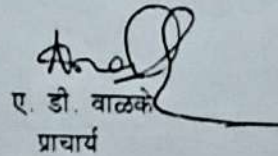 ए. डी. वाळके
प्राचार्य